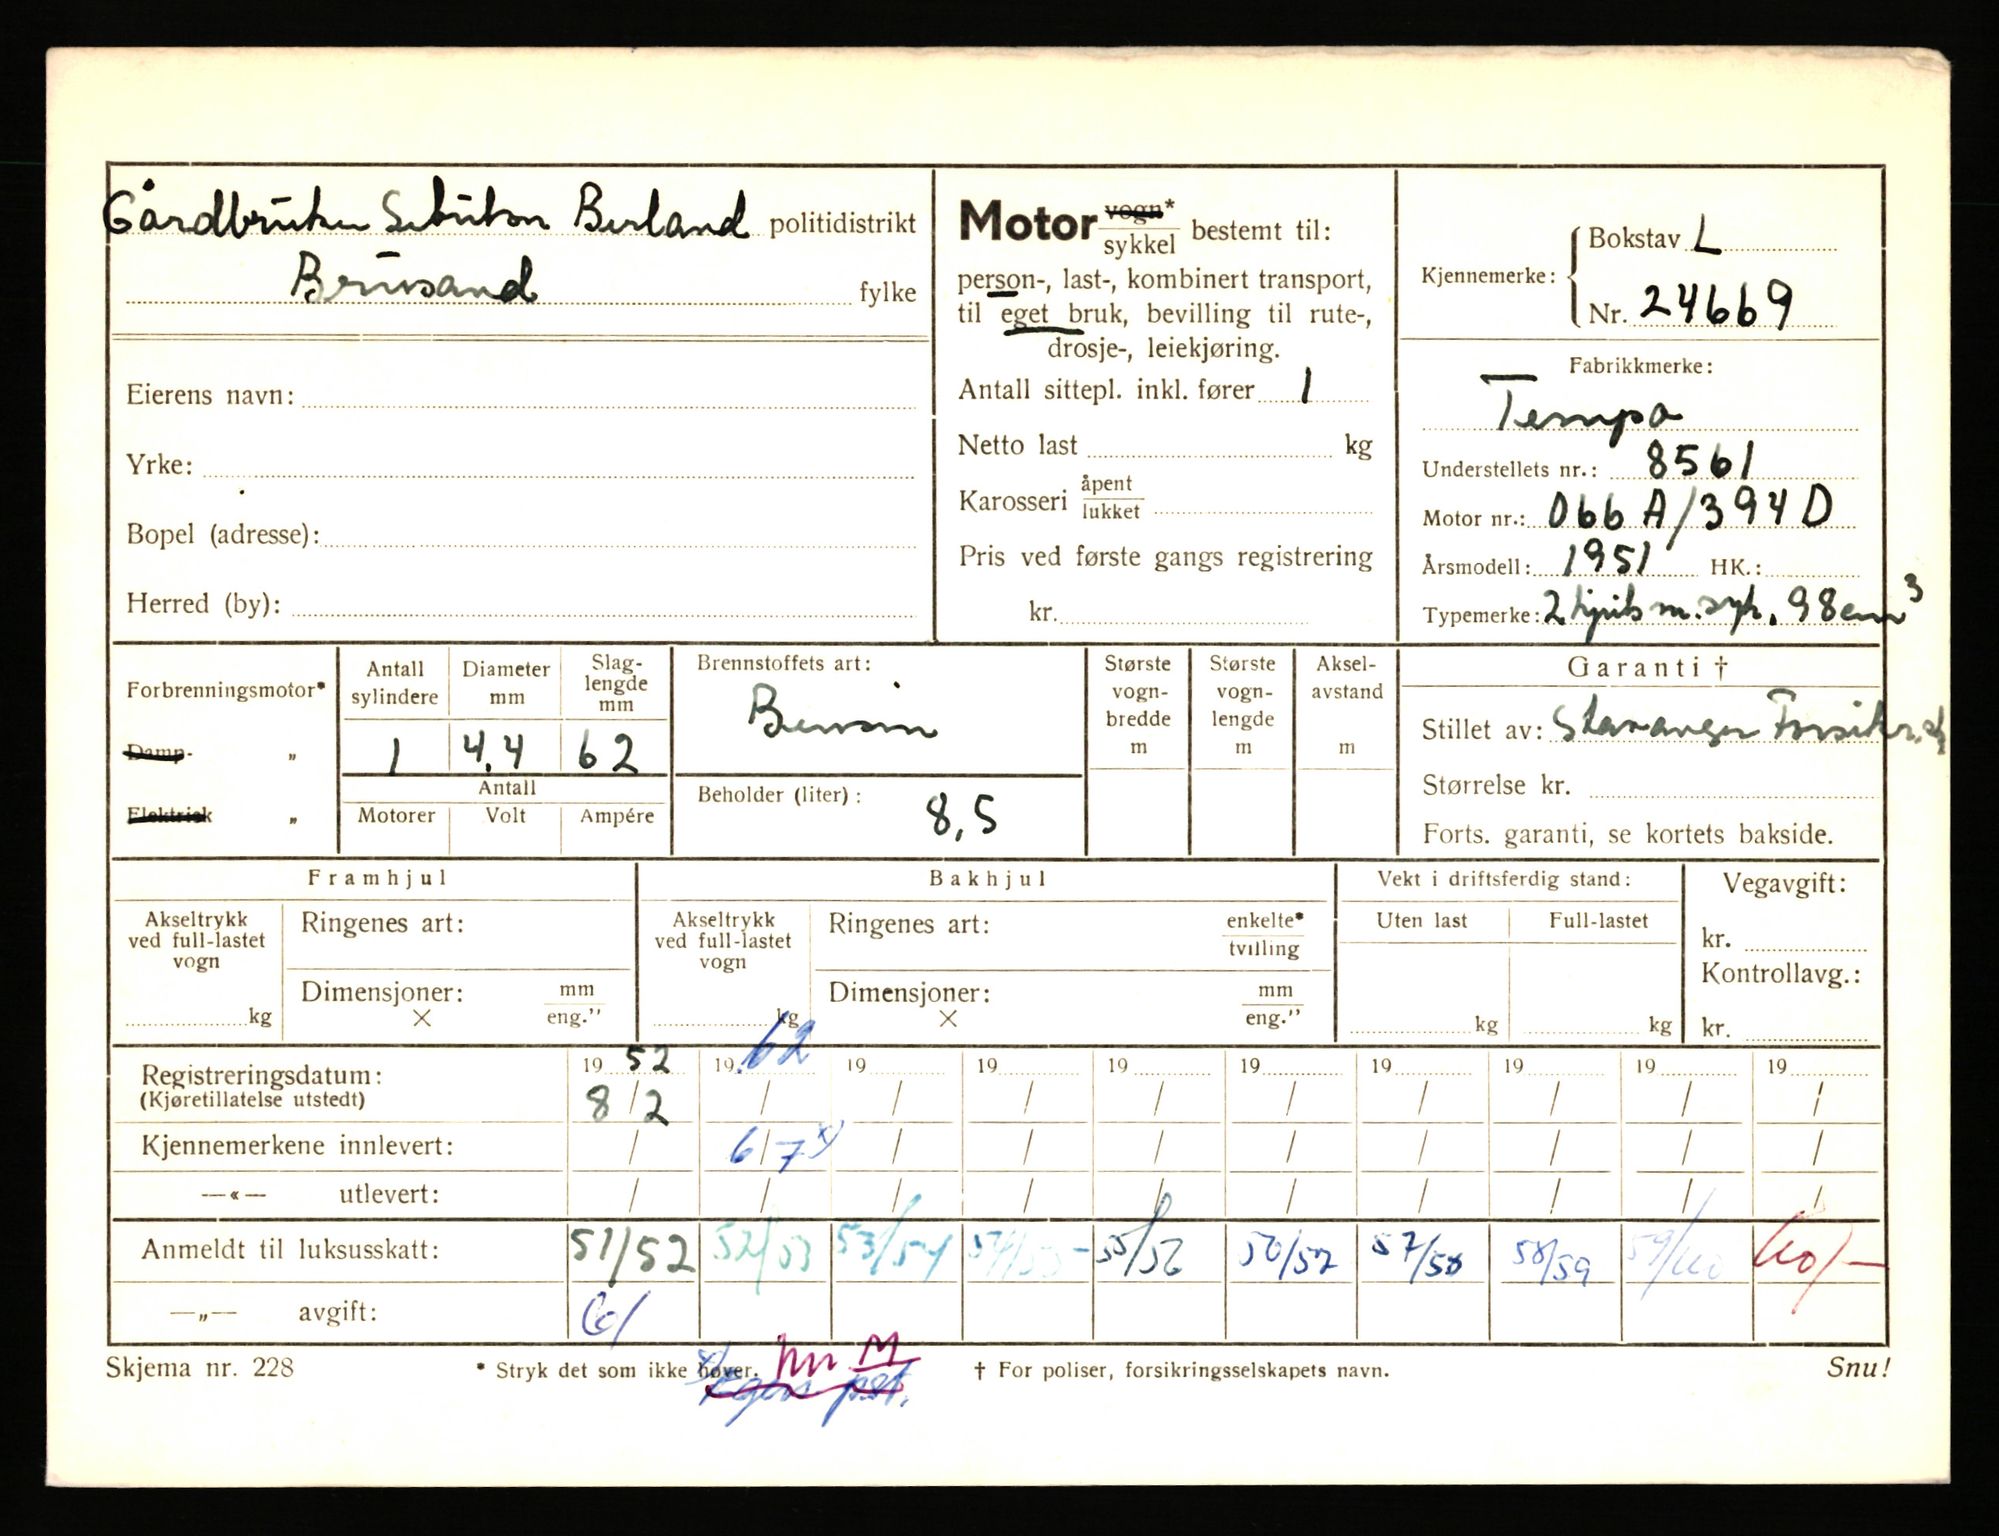 Gårdbruker Berland politidistrikt
Brusand fylke
Eierens navn:
Yrke:
Bopel (adresse):
Herred (by):
Motor vogn* / sykkel bestemt til:
person-, last-, kombinert transport,
til eget bruk, bevilling til rute-,
drosje-, leiekjøring.
Antall sittepl. inkl. fører 1
Netto last kg
Karosseri åpent / lukket
Pris ved første gangs registrering
kr.
Kjennemerke: Bokstav L
Nr. 24669
Fabrikkmerke:
Tempo
Understellets nr.: 8561
Motor nr.: 066 A/394 D
Årsmodell: 1951 HK.:
Typemerke: 2 hjuls m. syk. 98 cm³
Forbrenningsmotor*
Damp- „
Elektrisk „
Antall sylindere
1
Diameter mm
4.4
Slag-lengde mm
62
Antall
Motorer Volt Ampére
Brennstoffets art:
Bensin
Beholder (liter): 8,5
Største vogn-bredde m
Største vogn-lengde m
Aksel-avstand m
Garanti †
Stillet av: Stavanger Forsikr.
Størrelse kr.
Forts. garanti, se kortets bakside.
Framhjul
Akseltrykk ved full-lastet vogn
kg
Ringenes art:
Dimensjoner: mm / eng."
×
Bakhjul
Akseltrykk ved full-lastet vogn
kg
Ringenes art: enkelte* / tvilling
Dimensjoner: mm / eng."
×
Vekt i driftsferdig stand:
Uten last Full-lastet
kg kg
Vegavgift:
kr.
Kontrollavg.:
kr.
19 52 19 62 19 19 19 19 19 19 19 19
Registreringsdatum:
(Kjøretillatelse utstedt) 8/2 / / / / / / / / /
Kjennemerkene innlevert: / 6/7 x) / / / / / / / /
—«— utlevert: / / / / / / / / / /
Anmeldt til luksusskatt: 51/52 52/53 53/54 54/55 55/56 56/57 57/58 58/59 59/60 60/-
—„— avgift: 61
Skjema nr. 228 * Stryk det som ikke høver. † For poliser, forsikringsselskapets navn. Snu!